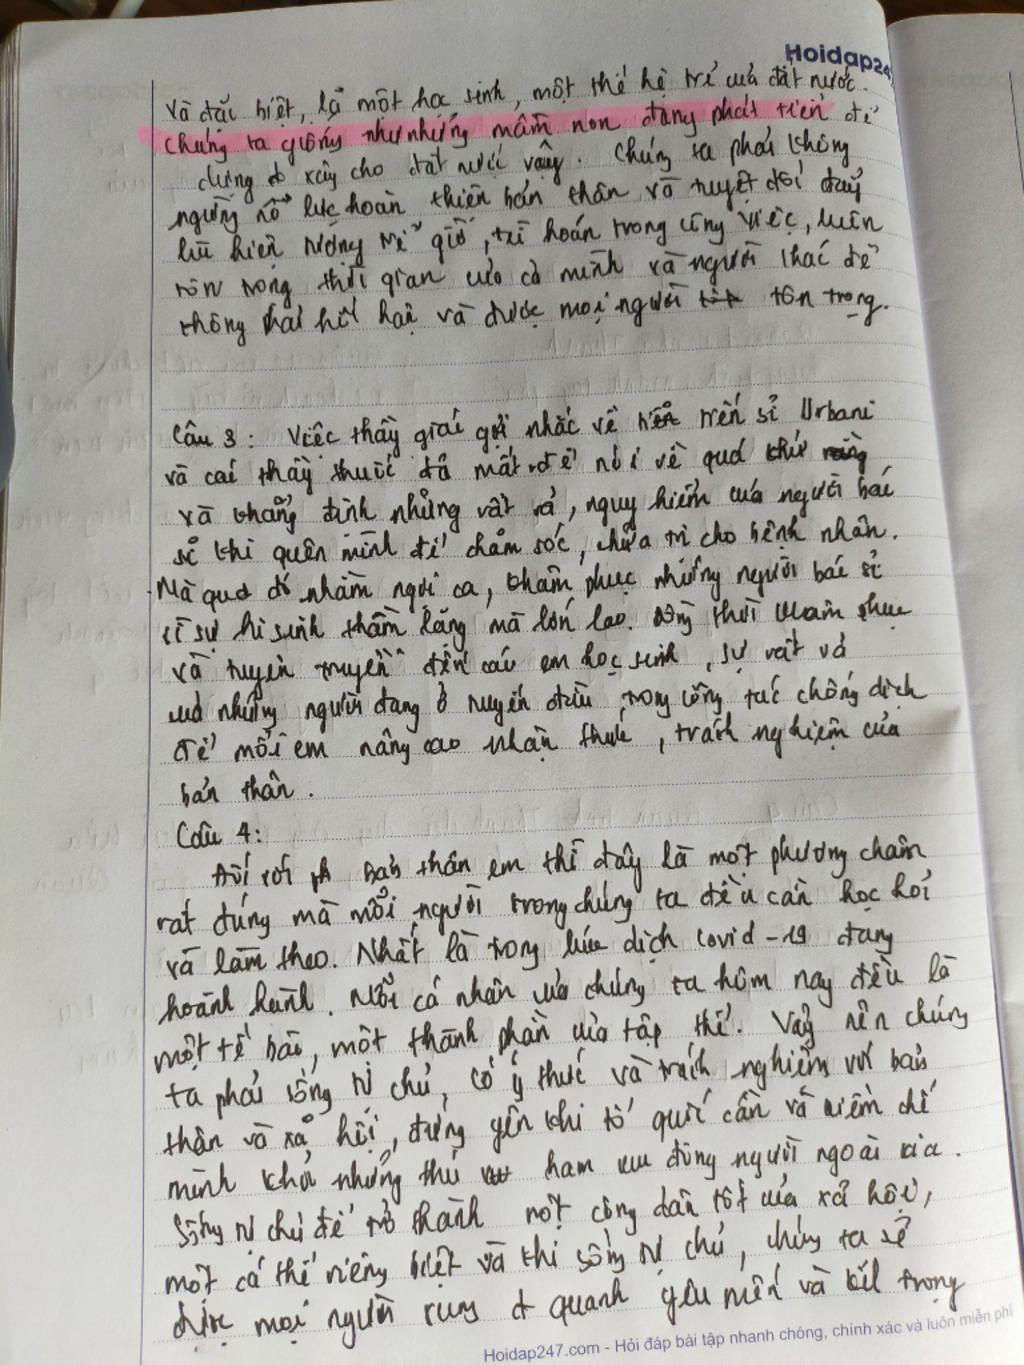 Hoidap247
Và đặc biệt, là một học sinh, một thế hệ trẻ của đất nước.
chúng ta giống như những mầm non đang phát triển để
dựng xây cho đất nước vậy. Chúng ta phải không
ngừng nỗ lực hoàn thiện bản thân và tuyệt đối đẩy
lùi hiện tượng trễ giờ, trì hoãn trong công việc, luôn
tôn trọng thời gian của cả mình và người khác để
không phải hối hận và được mọi người tôn trọng.
Câu 3: Việc thầy giáo gợi nhắc về tiến sĩ Urbani
và các thầy thuốc đã mất để nói về quá khứ
và khẳng định những vất vả, nguy hiểm của người bác
sĩ khi quên mình để chăm sóc, chữa trị cho bệnh nhân.
Mà qua đó nhằm ngợi ca, khâm phục những người bác sĩ
vì sự hi sinh thầm lặng mà lớn lao. Đồng thời khâm phục
và tuyên truyền đến các em học sinh, sự vất vả
của những người đang ở tuyến đầu trong công tác chống dịch
để mỗi em nâng cao nhận thức, trách nghiệm của
bản thân.
Câu 4:
Đối với bản thân em thì đây là một phương châm
rất đúng mà mỗi người trong chúng ta đều cần học hỏi
và làm theo. Nhất là trong lúc dịch covid-19 đang
hoành hành. Mỗi cá nhân của chúng ta hôm nay đều là
một tế bào, một thành phần của tập thể. Vậy nên chúng
ta phải sống tự chủ, có ý thức và trách nghiệm với bản
thân và xã hội, đứng yên khi tổ quốc cần và kiềm chế
mình khỏi những thú ham vui đông người ngoài kia.
Sống tự chủ để trở thành một công dân tốt của xã hội,
một cá thể riêng biệt và khi sống tự chủ, chúng ta sẽ
được mọi người xung quanh yêu mến và kính trọng
Hoidap247.com - Hỏi đáp bài tập nhanh chóng, chính xác và luôn miễn phí